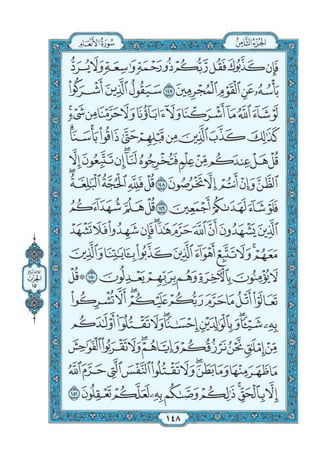 الجزء الثامن
سورة الأنعام
فَإِن كَذَّبُوكَ فَقُل رَّبُّكُمْ ذُو رَحْمَةٍ وَٰسِعَةٍ وَلَا يُرَدُّ
بَأْسُهُۥ عَنِ ٱلْقَوْمِ ٱلْمُجْرِمِينَ ١٤٧ سَيَقُولُ ٱلَّذِينَ أَشْرَكُوا۟
لَوْ شَآءَ ٱللَّهُ مَآ أَشْرَكْنَا وَلَآ ءَابَآؤُنَا وَلَا حَرَّمْنَا مِن شَىْءٍ
كَذَٰلِكَ كَذَّبَ ٱلَّذِينَ مِن قَبْلِهِمْ حَتَّىٰ ذَاقُوا۟ بَأْسَنَا
قُلْ هَلْ عِندَكُم مِّنْ عِلْمٍ فَتُخْرِجُوهُ لَنَآ إِن تَتَّبِعُونَ إِلَّا
ٱلظَّنَّ وَإِنْ أَنتُمْ إِلَّا تَخْرُصُونَ ١٤٨ قُلْ فَلِلَّهِ ٱلْحُجَّةُ ٱلْبَٰلِغَةُ
فَلَوْ شَآءَ لَهَدَىٰكُمْ أَجْمَعِينَ ١٤٩ قُلْ هَلُمَّ شُهَدَآءَكُمُ
ٱلَّذِينَ يَشْهَدُونَ أَنَّ ٱللَّهَ حَرَّمَ هَٰذَا فَإِن شَهِدُوا۟ فَلَا تَشْهَدْ
مَعَهُمْ وَلَا تَتَّبِعْ أَهْوَآءَ ٱلَّذِينَ كَذَّبُوا۟ بِـَٔايَٰتِنَا وَٱلَّذِينَ
لَا يُؤْمِنُونَ بِٱلْـَٔاخِرَةِ وَهُم بِرَبِّهِمْ يَعْدِلُونَ ١٥٠ ۞ قُلْ
تَعَالَوْا۟ أَتْلُ مَا حَرَّمَ رَبُّكُمْ عَلَيْكُمْ أَلَّا تُشْرِكُوا۟
بِهِۦ شَيْـًٔا وَبِٱلْوَٰلِدَيْنِ إِحْسَٰنًا وَلَا تَقْتُلُوٓا۟ أَوْلَٰدَكُم
مِّنْ إِمْلَٰقٍ نَّحْنُ نَرْزُقُكُمْ وَإِيَّاهُمْ وَلَا تَقْرَبُوا۟ ٱلْفَوَٰحِشَ
مَا ظَهَرَ مِنْهَا وَمَا بَطَنَ وَلَا تَقْتُلُوا۟ ٱلنَّفْسَ ٱلَّتِى حَرَّمَ ٱللَّهُ
إِلَّا بِٱلْحَقِّ ذَٰلِكُمْ وَصَّىٰكُم بِهِۦ لَعَلَّكُمْ تَعْقِلُونَ ١٥١
الحزب
١٥
١٤٨